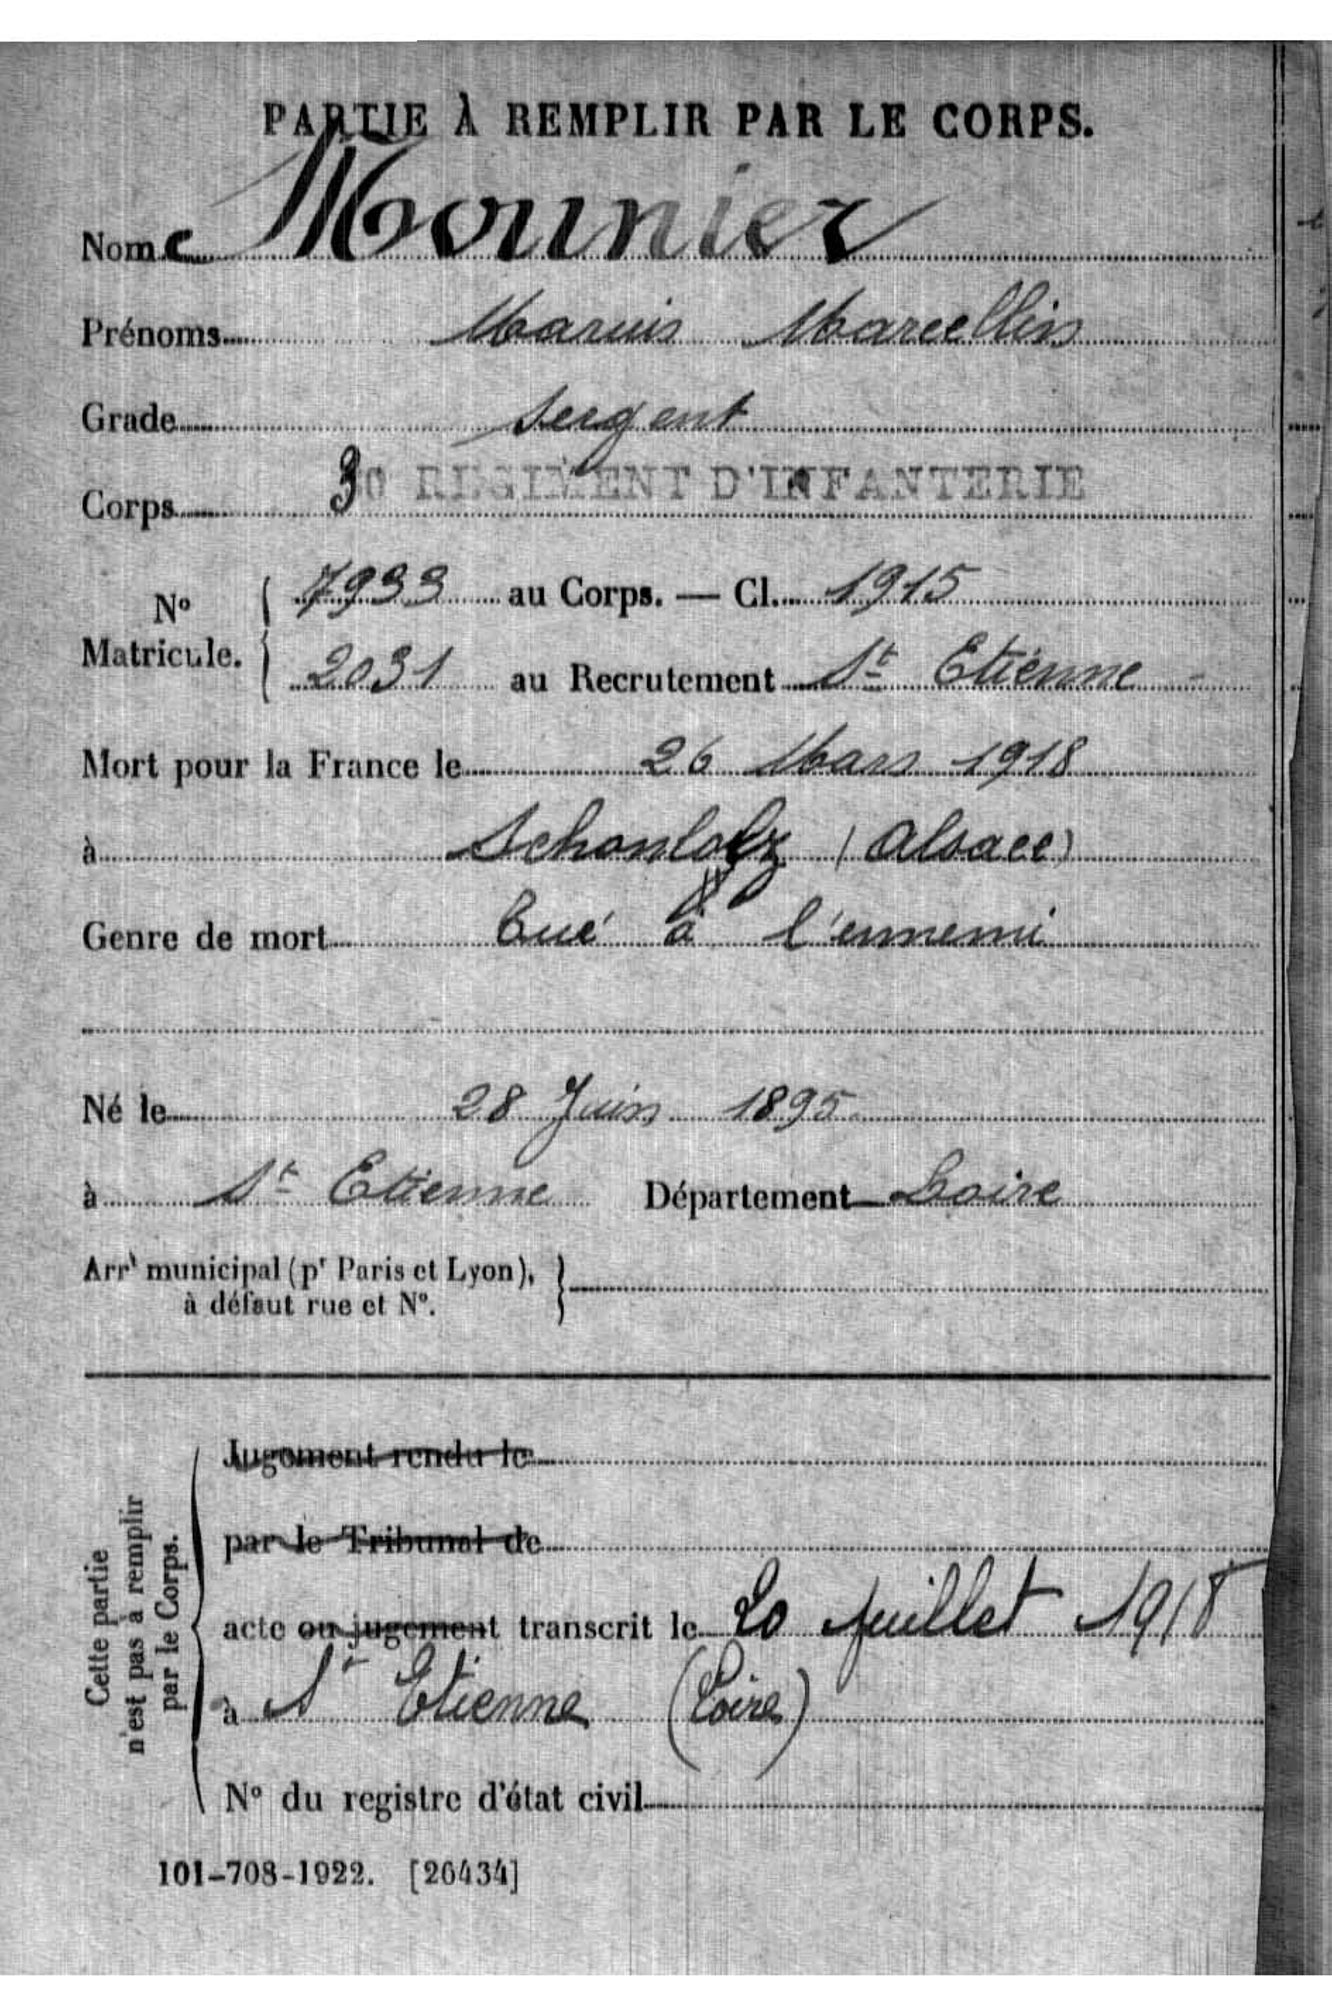 PARTIE À REMPLIR PAR LE CORPS.
Nom Mounier
Prénoms Marius Marcellin
Grade Sergent
Corps 30 REGIMENT D'INFANTERIE
N° Matricule. 7933 au Corps. — Cl. 1915
2031 au Recrutement St Etienne
Mort pour la France le 26 Mars 1918
à (Alsace)
Genre de mort Tué à l'ennemi
Né le 28 Juin 1895
à St Etienne Département Loire
Arrt municipal (pr Paris et Lyon),
à défaut rue et N°.
Cette partie
n'est pas à remplir
par le Corps.
Jugement rendu le
par le Tribunal de
acte ou jugement transcrit le 20 Juillet 1918
à St Etienne (Loire)
N° du registre d'état civil
101-708-1922. [26434]